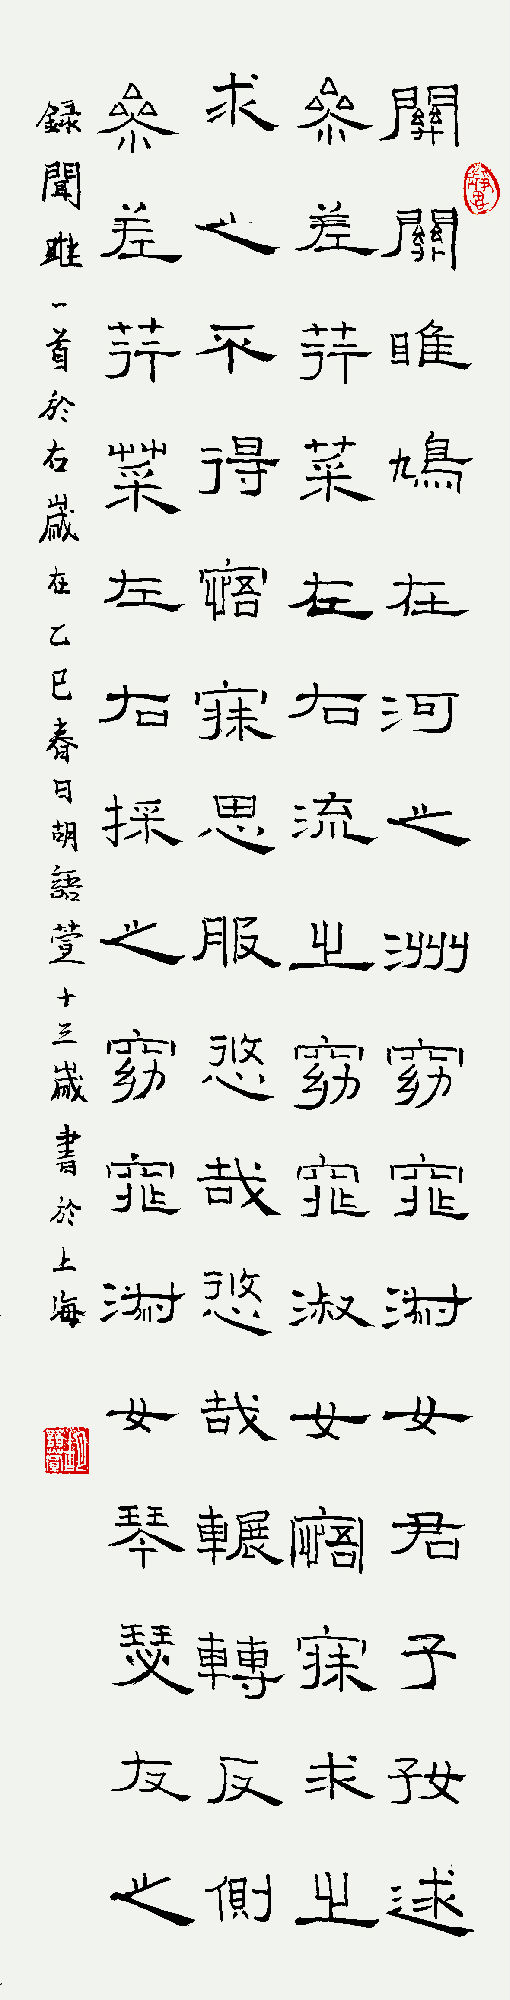 關關睢鳩在河之洲窈窕淑女君子好逑
參差荇菜左右流之窈窕淑女寤寐求之
求之不得寤寐思服悠哉悠哉輾轉反側
參差荇菜左右採之窈窕淑女琴瑟友之
録聞雎一首於右歲在乙巳春日胡語萱十三歲書於上海